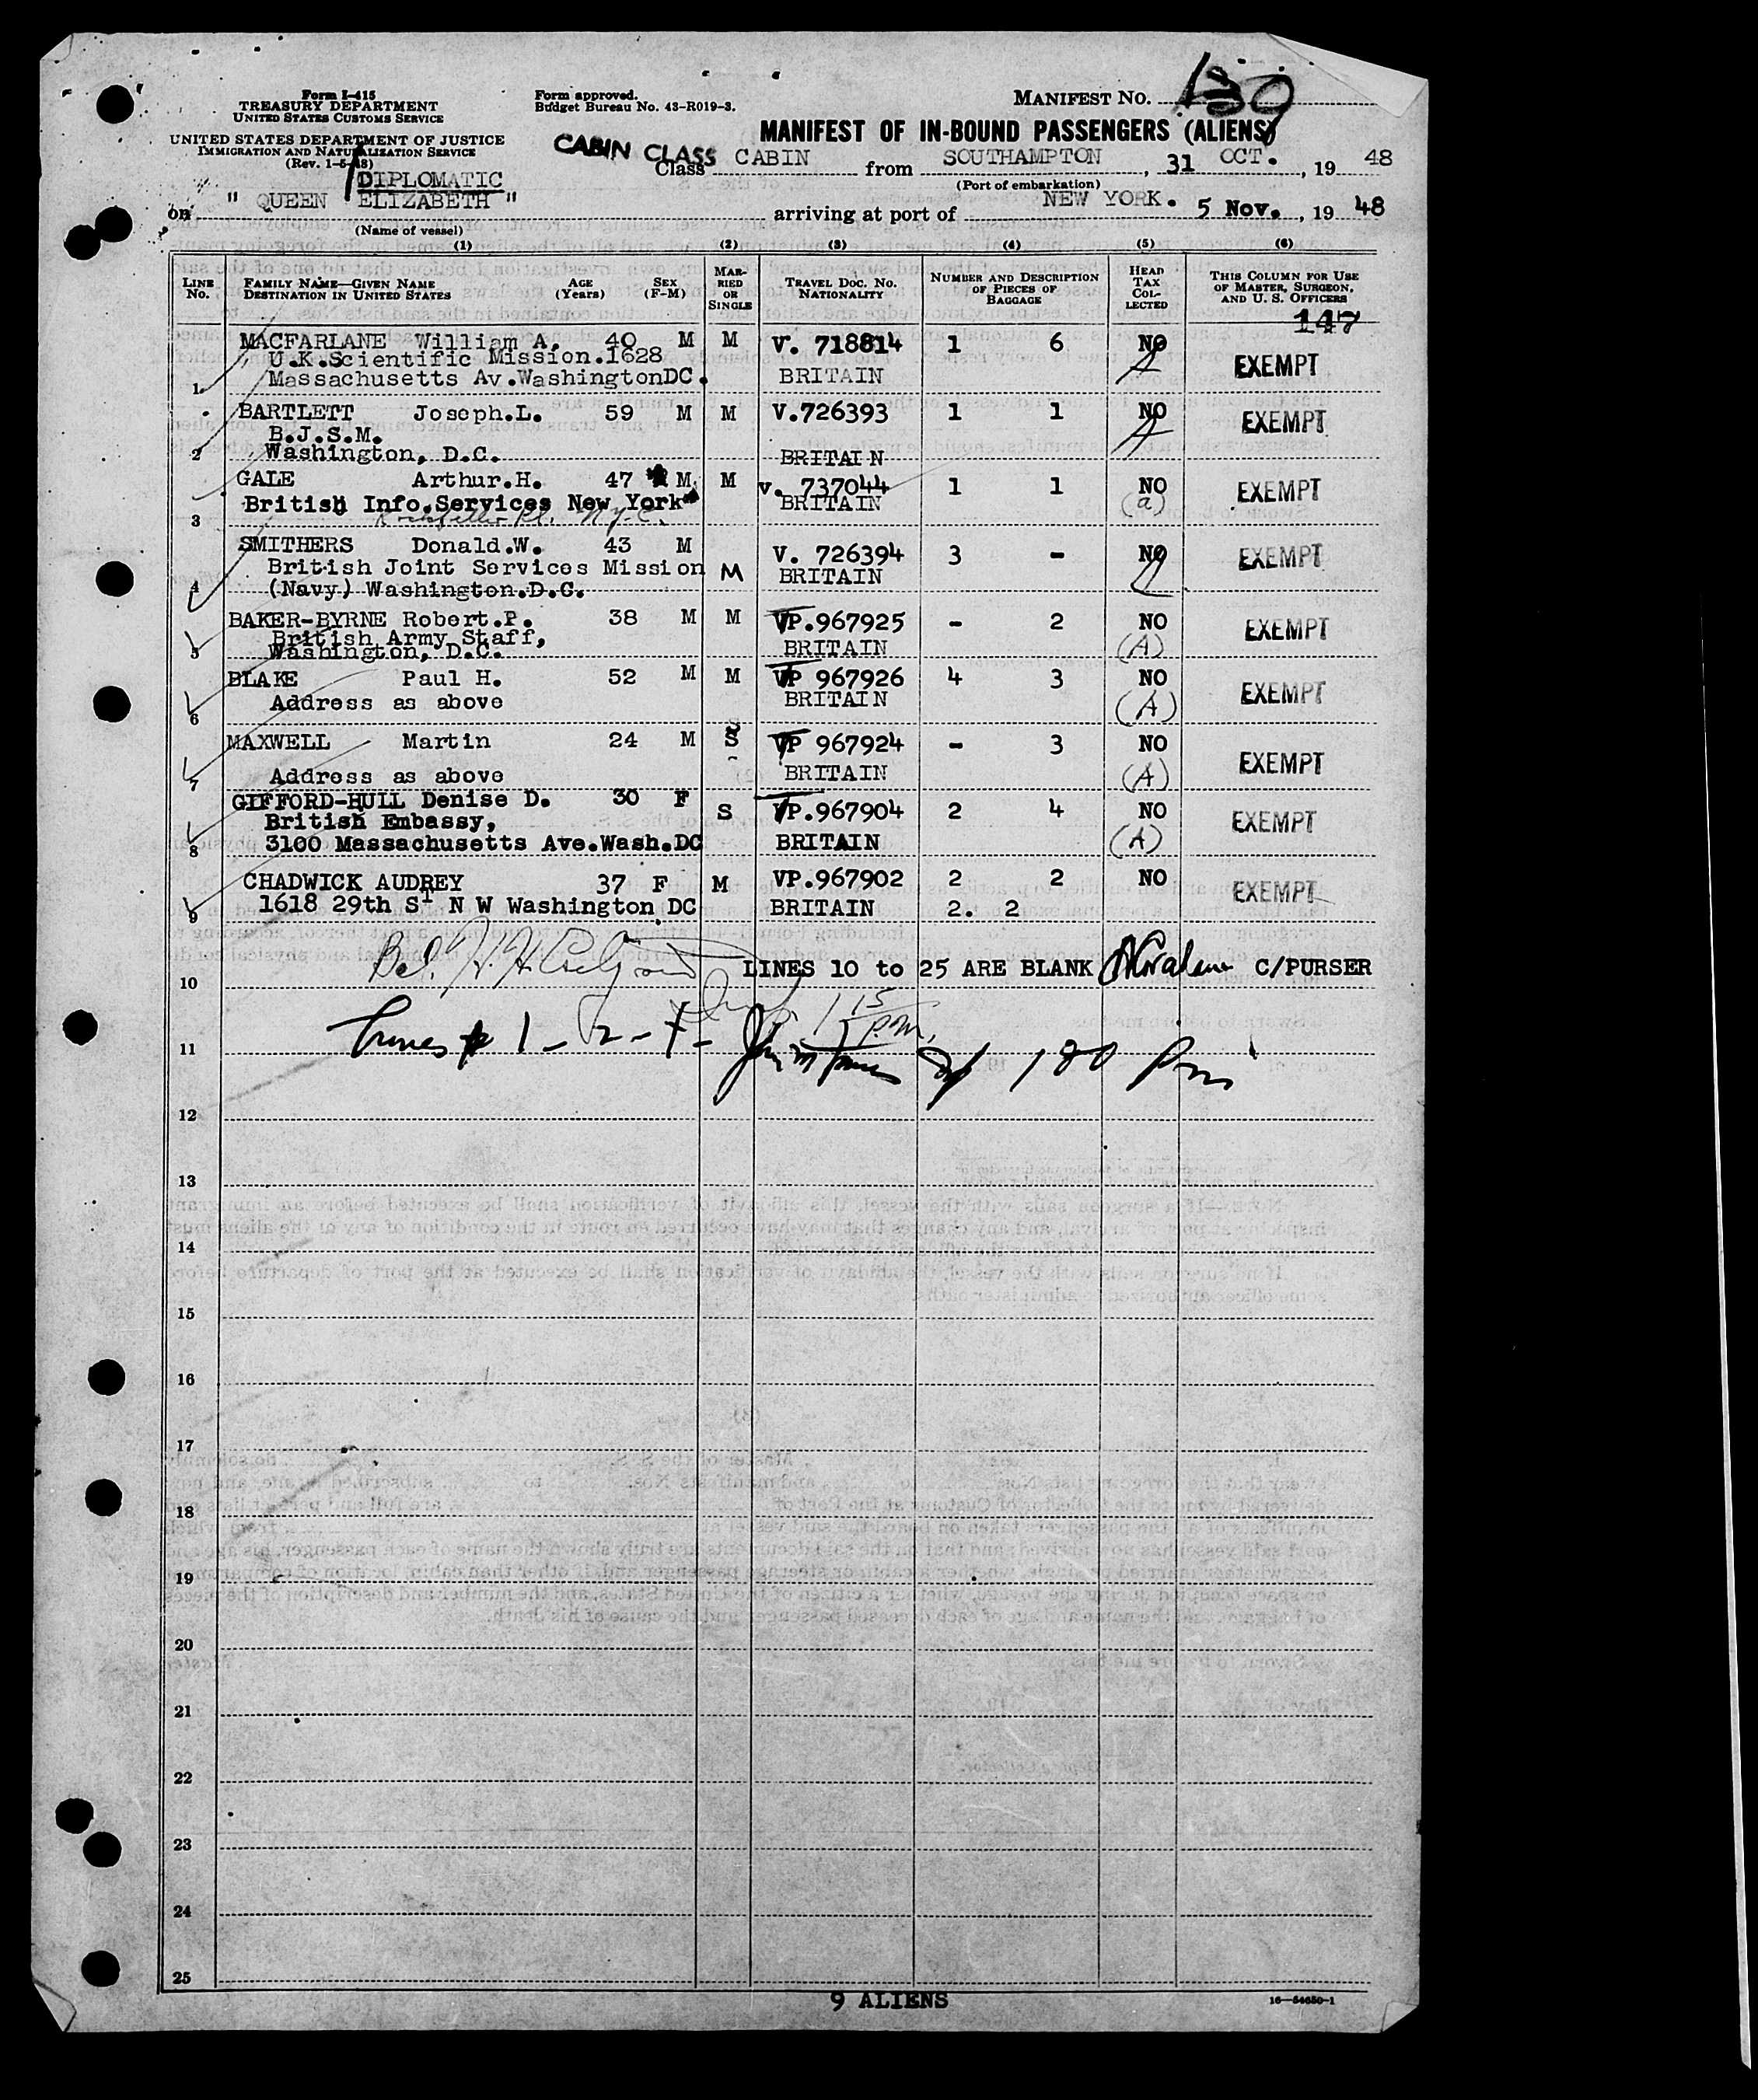 Form I-415
TREASURY DEPARTMENT
UNITED STATES CUSTOMS SERVICE
UNITED STATES DEPARTMENT OF JUSTICE
IMMIGRATION AND NATURALIZATION SERVICE
(Rev. 1-5-48)
Form approved.
Budget Bureau No. 43-R019-3.
MANIFEST NO.
MANIFEST OF IN-BOUND PASSENGERS (ALIENS)
CABIN CLASS
Class CABIN from SOUTHAMPTON, 31 OCT., 19 48
(Port of embarkation)
DIPLOMATIC
on " QUEEN ELIZABETH " arriving at port of NEW YORK. 5 Nov., 19 48
(Name of vessel)
(1) (2) (3) (4) (5) (6)
LINE NO. FAMILY NAME—GIVEN NAME DESTINATION IN UNITED STATES AGE (Years) SEX (F-M) MARRIED OR SINGLE TRAVEL DOC. NO. NATIONALITY NUMBER AND DESCRIPTION OF PIECES OF BAGGAGE HEAD TAX COLLECTED THIS COLUMN FOR USE OF MASTER, SURGEON, AND U. S. OFFICERS
147
MACFARLANE William A. 40 M M V. 718814 1 6 NO
U.K.Scientific Mission.1628 EXEMPT
1 Massachusetts Av.WashingtonDC. BRITAIN
BARTLETT Joseph.L. 59 M M V.726393 1 1 NO EXEMPT
B.J.S.M.
2 Washington, D.C. BRITAIN
GALE Arthur.H. 47 M M v. 737044 1 1 NO EXEMPT
British Info.Services New York BRITAIN (a)
3 Rockefeller Pl. N.Y.C.
SMITHERS Donald.W. 43 M M V. 726394 3 - NO EXEMPT
British Joint Services Mission BRITAIN
4 (Navy) Washington.D.C.
BAKER-BYRNE Robert.P. 38 M M VP.967925 - 2 NO EXEMPT
British Army Staff,
5 Washington, D.C. BRITAIN (A)
BLAKE Paul H. 52 M M VP 967926 4 3 NO EXEMPT
6 Address as above BRITAIN (A)
MAXWELL Martin 24 M S VP 967924 - 3 NO EXEMPT
7 Address as above BRITAIN (A)
GIFFORD-HULL Denise D. 30 F S VP.967904 2 4 NO EXEMPT
British Embassy,
8 3100 Massachusetts Ave.Wash.DC BRITAIN (A)
CHADWICK AUDREY 37 F M VP.967902 2 2 NO EXEMPT
9 1618 29th St N W Washington DC BRITAIN 2. 2
10 LINES 10 to 25 ARE BLANK C/PURSER
1 15 p.m.
11
12
13
14
15
16
17
18
19
20
21
22
23
24
25
9 ALIENS
16—54650-1